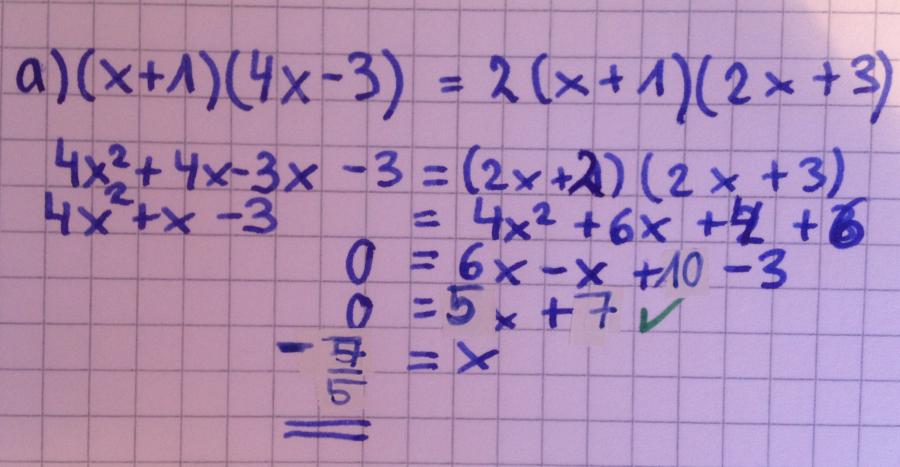 a) (x+1)(4x-3) = 2(x+1)(2x+3)
4x²+4x-3x-3 = (2x+2)(2x+3)
4x²+x-3 = 4x²+6x+4+6
0 = 6x-x+10-3
0 = 5x+7 ✓
-7/5 = x